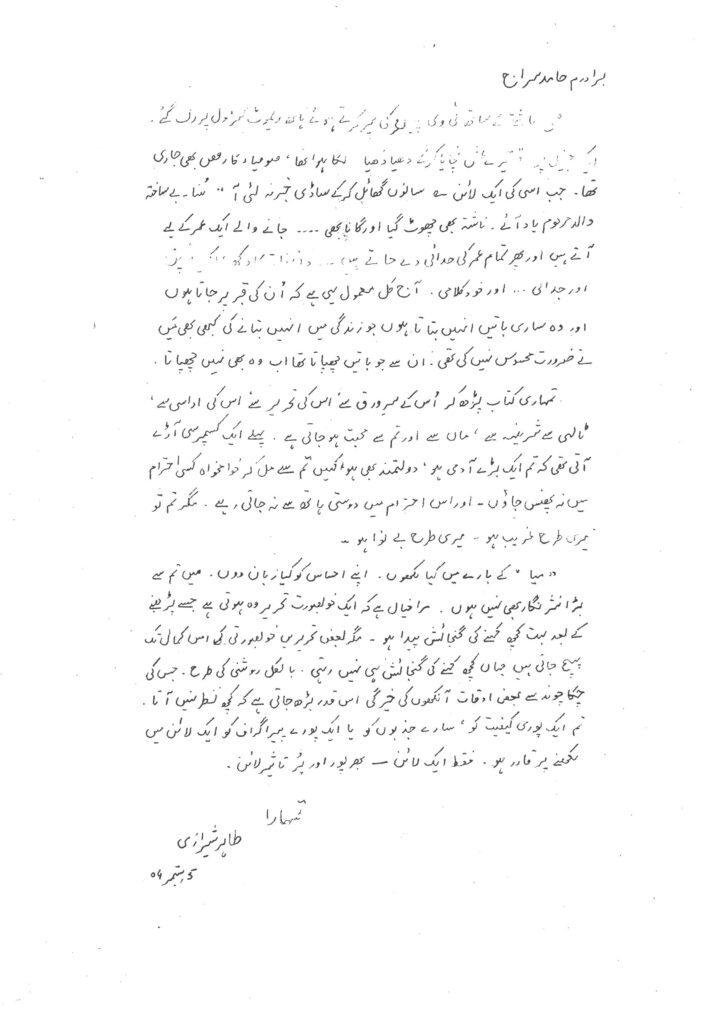 برادرم حامد سراج
صبح ناشتے کے ساتھ ٹی وی پر کی سیر کرتے ہوئے ہاتھ ریموٹ کنٹرول پر رک گئے۔
ایک چینل پر تیرے عشق نچایا کرکے تھیا تھیا لگا ہوا تھا، صوفیانہ رقص بھی جاری
تھا۔ جب اسی کی ایک لائن سے سانوں گھائل کرکے ساڈی خبر نہ لئی آ" سُنا۔ بے ساختہ
والد مرحوم یاد آئے۔ ناشتہ بھی چھوٹ گیا اور گانا بھی .... جانے والے ایک عمر کے لیے
آتے ہیں اور پھر تمام عمر کی جدائی دے جاتے ہیں
اور جدائی ... اور خودکلامی۔ آج کل معمول یہی ہے کہ اُن کی قبر پر جاتا ہوں
اور وہ ساری باتیں انہیں بتاتا ہوں جو زندگی میں انہیں بتانے کی کبھی بھی میں
نے ضرورت محسوس نہیں کی تھی۔ ان سے جو باتیں چھپاتا تھا اب وہ بھی نہیں چھپاتا۔
تمہاری کتاب پڑھ کر اُس کے سرورق سے اس کی تحریر سے اس کی اداسی سے،
ٹاہلی سے شرینہہ سے، ماں سے اور تم سے محبت ہو جاتی ہے۔ پہلے ایک کسمپرسی آڑے
آتی تھی کہ تم ایک بڑے آدمی ہو، دولتمند بھی ہو، کہیں تم سے مل کر خوامخواہ کسی احترام
میں نہ پھنس جاؤں۔ اور اس احترام میں دوستی ہاتھ سے نہ جاتی رہے۔ مگر تم تو
میری طرح غریب ہو - میری طرح بے نوا ہو -
"میا" کے بارے میں کیا لکھوں۔ اپنے احساس کو کیا زبان دوں۔ میں تم سے
بڑا نثر نگار بھی نہیں ہوں۔ مرا خیال ہے کہ ایک خوبصورت تحریر وہ ہوتی ہے جسے پڑھنے
کے بعد بہت کچھ کہنے کی گنجائش پیدا ہو - مگر بعض تحریریں خوبصورتی کی اس کمال تک
پہنچ جاتی ہیں جہاں کچھ کہنے کی گنجائش ہی نہیں رہتی۔ بالکل روشنی کی طرح۔ جس کی
چکاچوند سے بعض اوقات آنکھوں کی خیرگی اس قدر بڑھ جاتی ہے کہ کچھ نظر نہیں آتا۔
تم ایک پوری کیفیت کو، سارے جذبوں کو یا ایک پورے پیراگراف کو ایک لائن میں
لکھنے پر قادر ہو۔ فقط ایک لائن - بھرپور اور پُر تاثیر لائن۔
تمہارا
طاہر شیرازی
ستمبر ۰۴